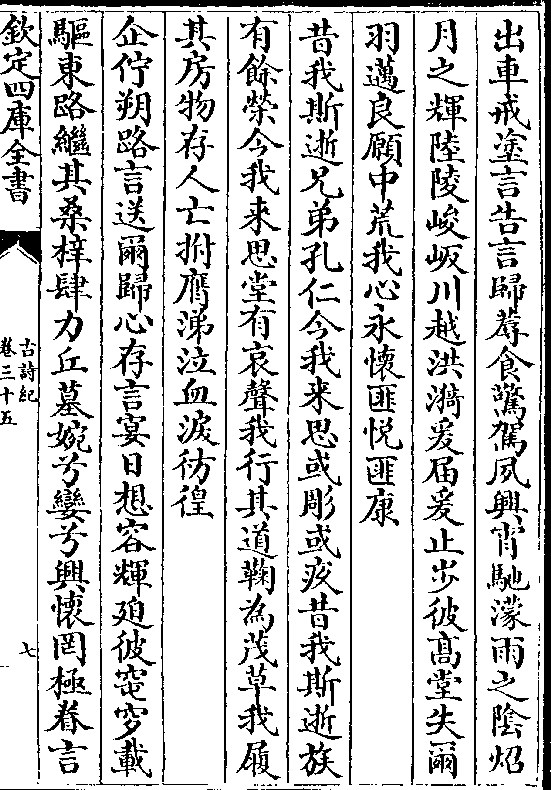 出車戒塗言告言歸蓐食驚駕夙興宵馳濛雨之陰炤
月之輝陸陵峻坂川越洪漪爰届爰止步彼髙堂失爾
羽邁良願中荒我心永懷匪悦匪康
昔我斯逝兄弟孔仁今我来思或彫或疚昔我斯逝族
有餘榮今我来思堂有哀聲我行其道鞠為茂草我履
其房物存人亡拊膺涕泣血淚彷徨
企佇朔路言送爾歸心存言宴日想容輝廹彼窀穸載
驅東路繼其桑梓肆力丘墓婉兮孌兮興懷罔極眷言
欽定四庫全書
古詩紀
卷三十五
七